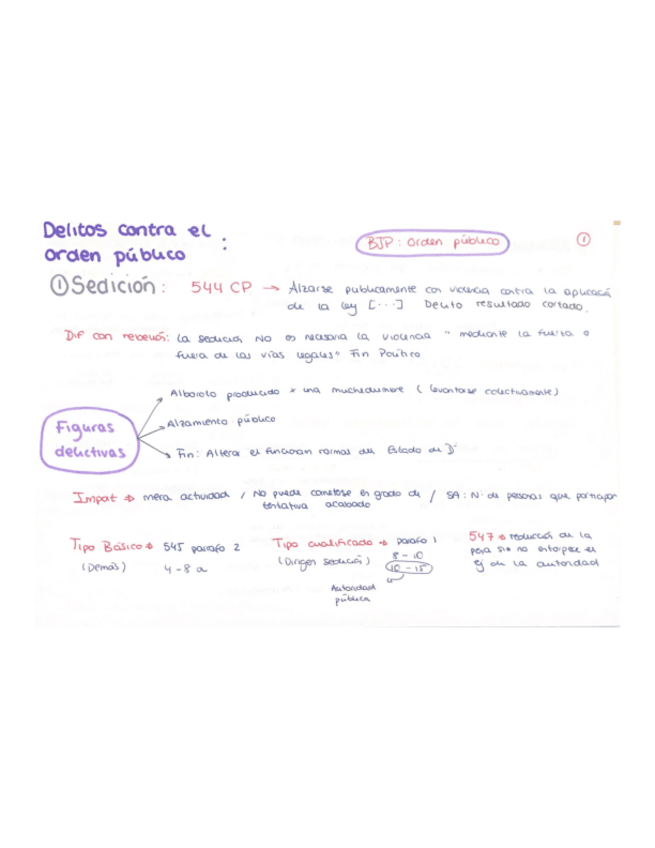 Delitos contra el
orden público :
BJP: orden público
①
① Sedición: 544 CP → Alzarse publicamente con violencia contra la aplicació
de la ley [...] Delito resultado cortado.
Dif con rebelión: la sedición NO es necesaria la violencia " mediante la fuerza o
fuera de las vías legales" Fin Político
Figuras
delictivas
Alboroto producido x una muchedumbre ( levantarse colectivamente)
Alzamiento público
Fin: Alterar el funcionan normal del Estado de Dº
Impat → mera actividad / No puede cometerse en grado de / SA: Nº de personas que participan
tentativa acabado
Tipo Básico → 545 párrafo 2
(Demás) 4-8 a
Tipo cualificado → párrafo 1
(Dirigen sedición) 8-10
10-15
Autoridad
pública
547 → reducción de la
pena si no entorpece el
ej de la autoridad